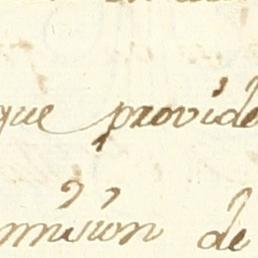 que provide
mision de